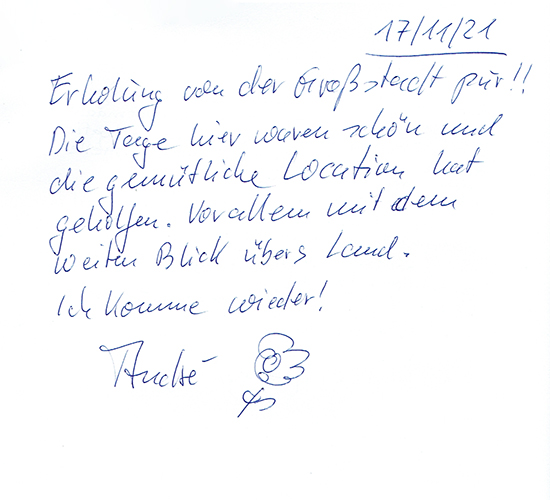 17/11/21
Erholung von der Großstadt pur!!
Die Tage hier waren schön und
die gemütliche Location hat
geholfen. Vorallem mit dem
weiten Blick übers Land.
Ich komme wieder!
André